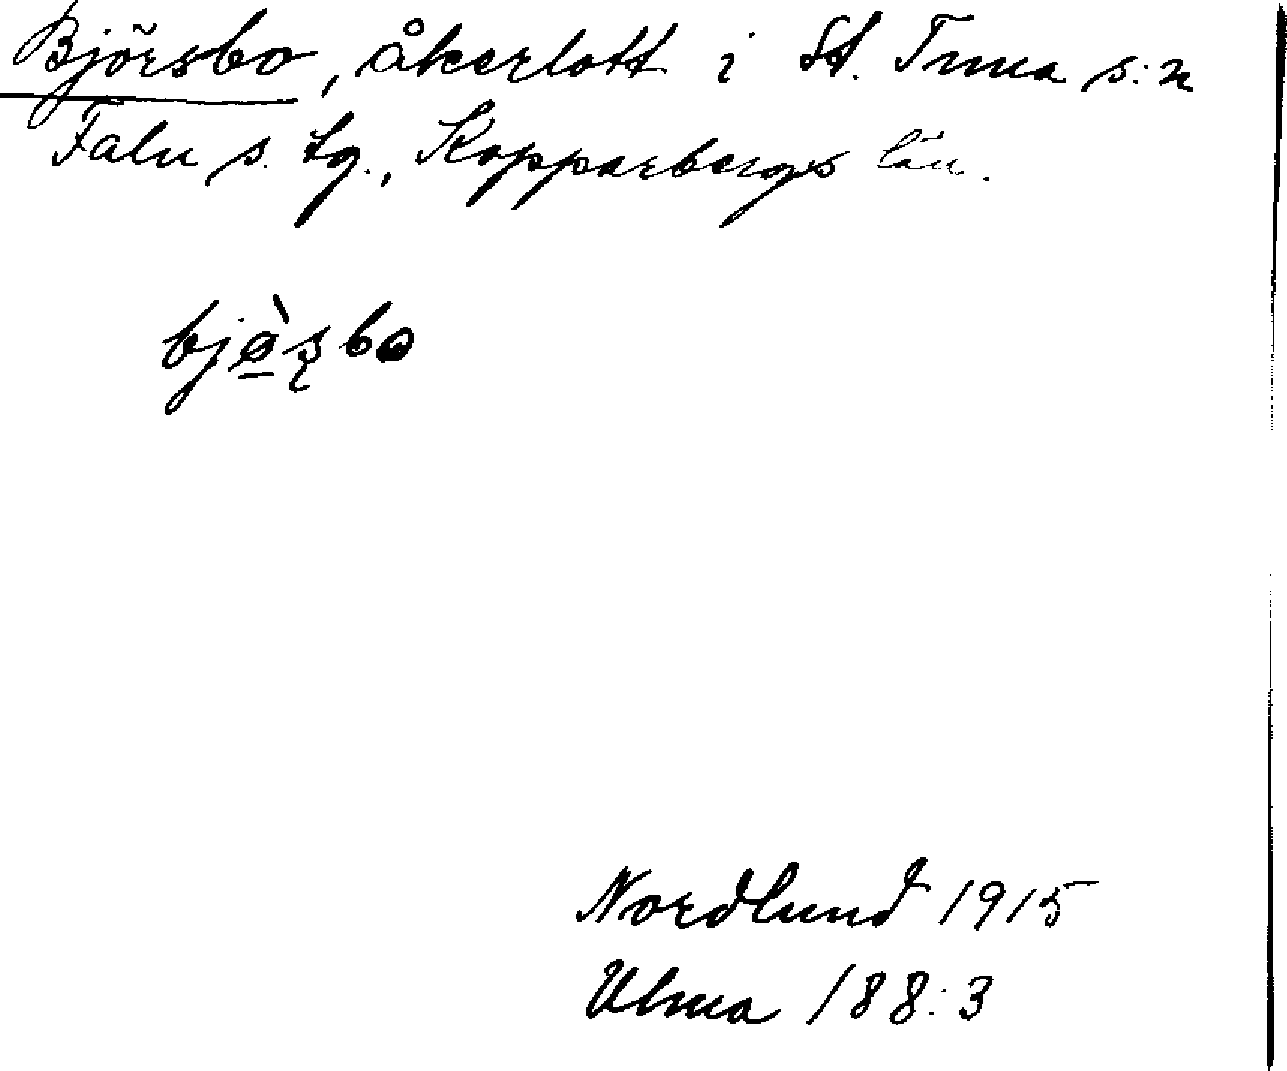 Björsbo, åkerlott i St. Tuna s:n
Falu s. tg., Kopparbergs län.
bjø̀ʂbo
Nordlund 1915
Ulma 188:3